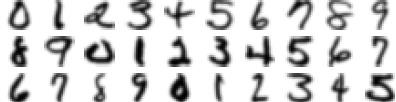 0 1 2 3 4 5 6 7 8 9
8 9 0 1 2 3 4 5 6 7
6 7 8 9 0 1 2 3 4 5